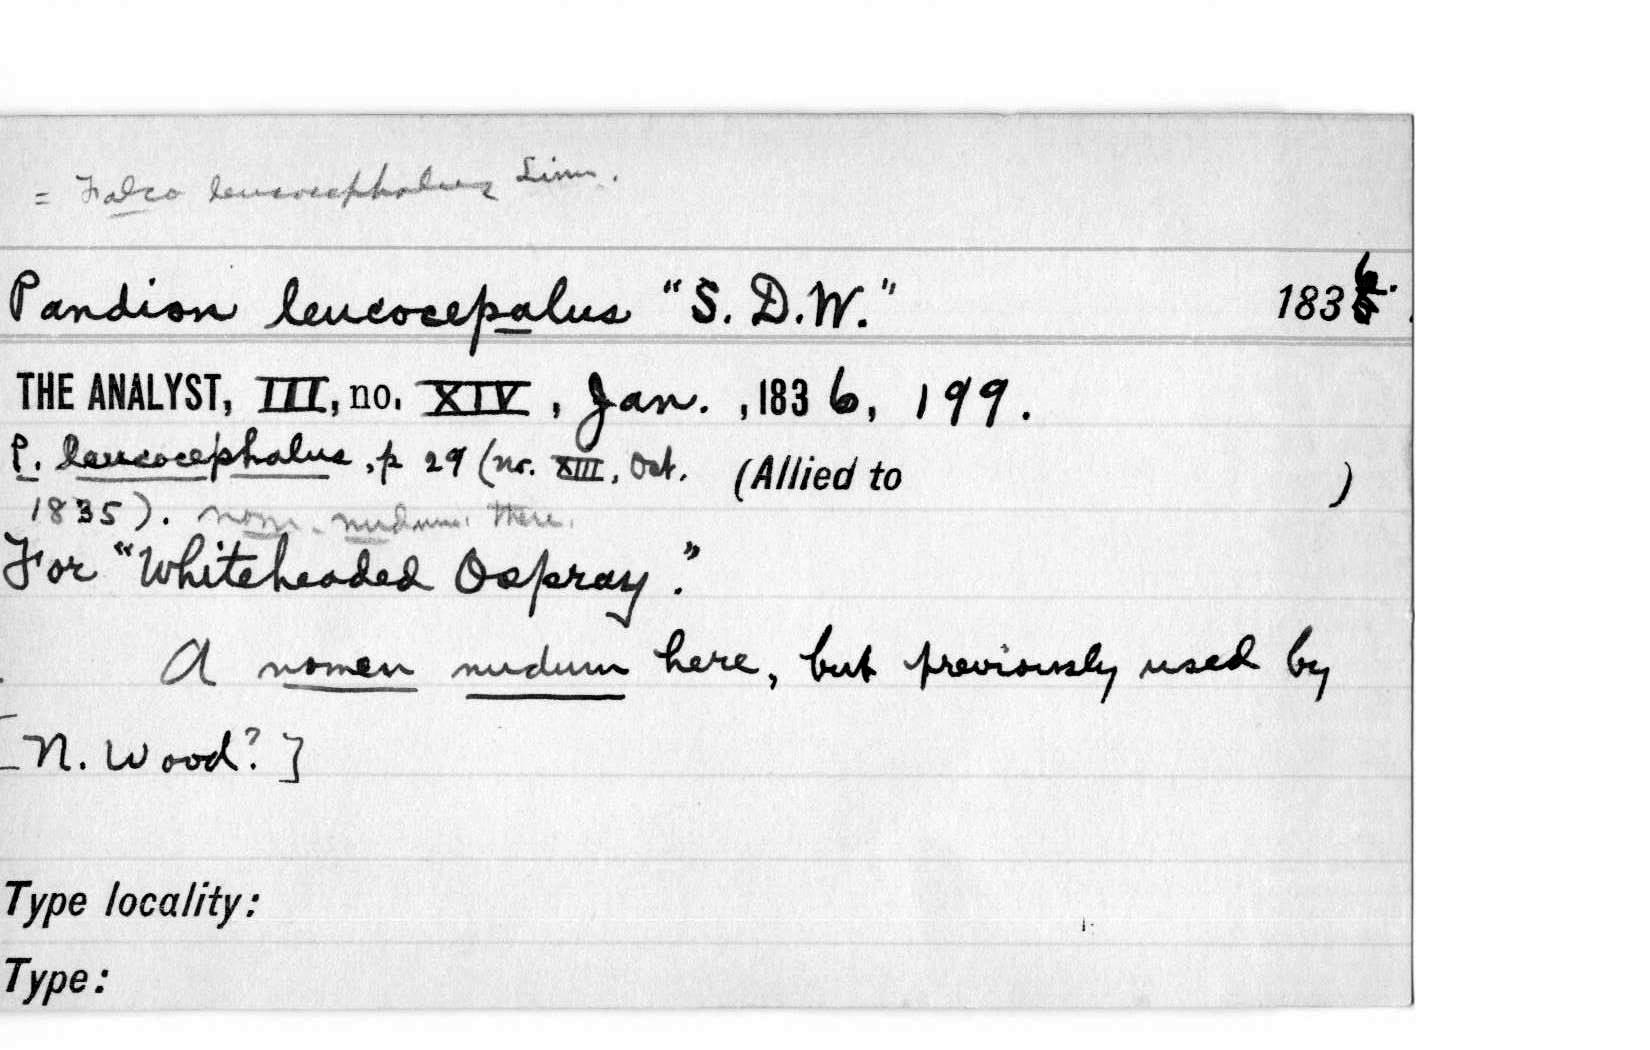 = Falco leucocephalus Linn.
Pandion leucocepalus "S. D.W." 1836.
THE ANALYST, III, no. XIV, Jan. , 1836, 199.
P. leucocephalus, p 29 (no. XIII, Oct. (Allied to )
1835). nom. nudum there.
For "Whiteheaded Ospray."
A nomen nudum here, but previously used by
[N. Wood?]
Type locality:
Type: